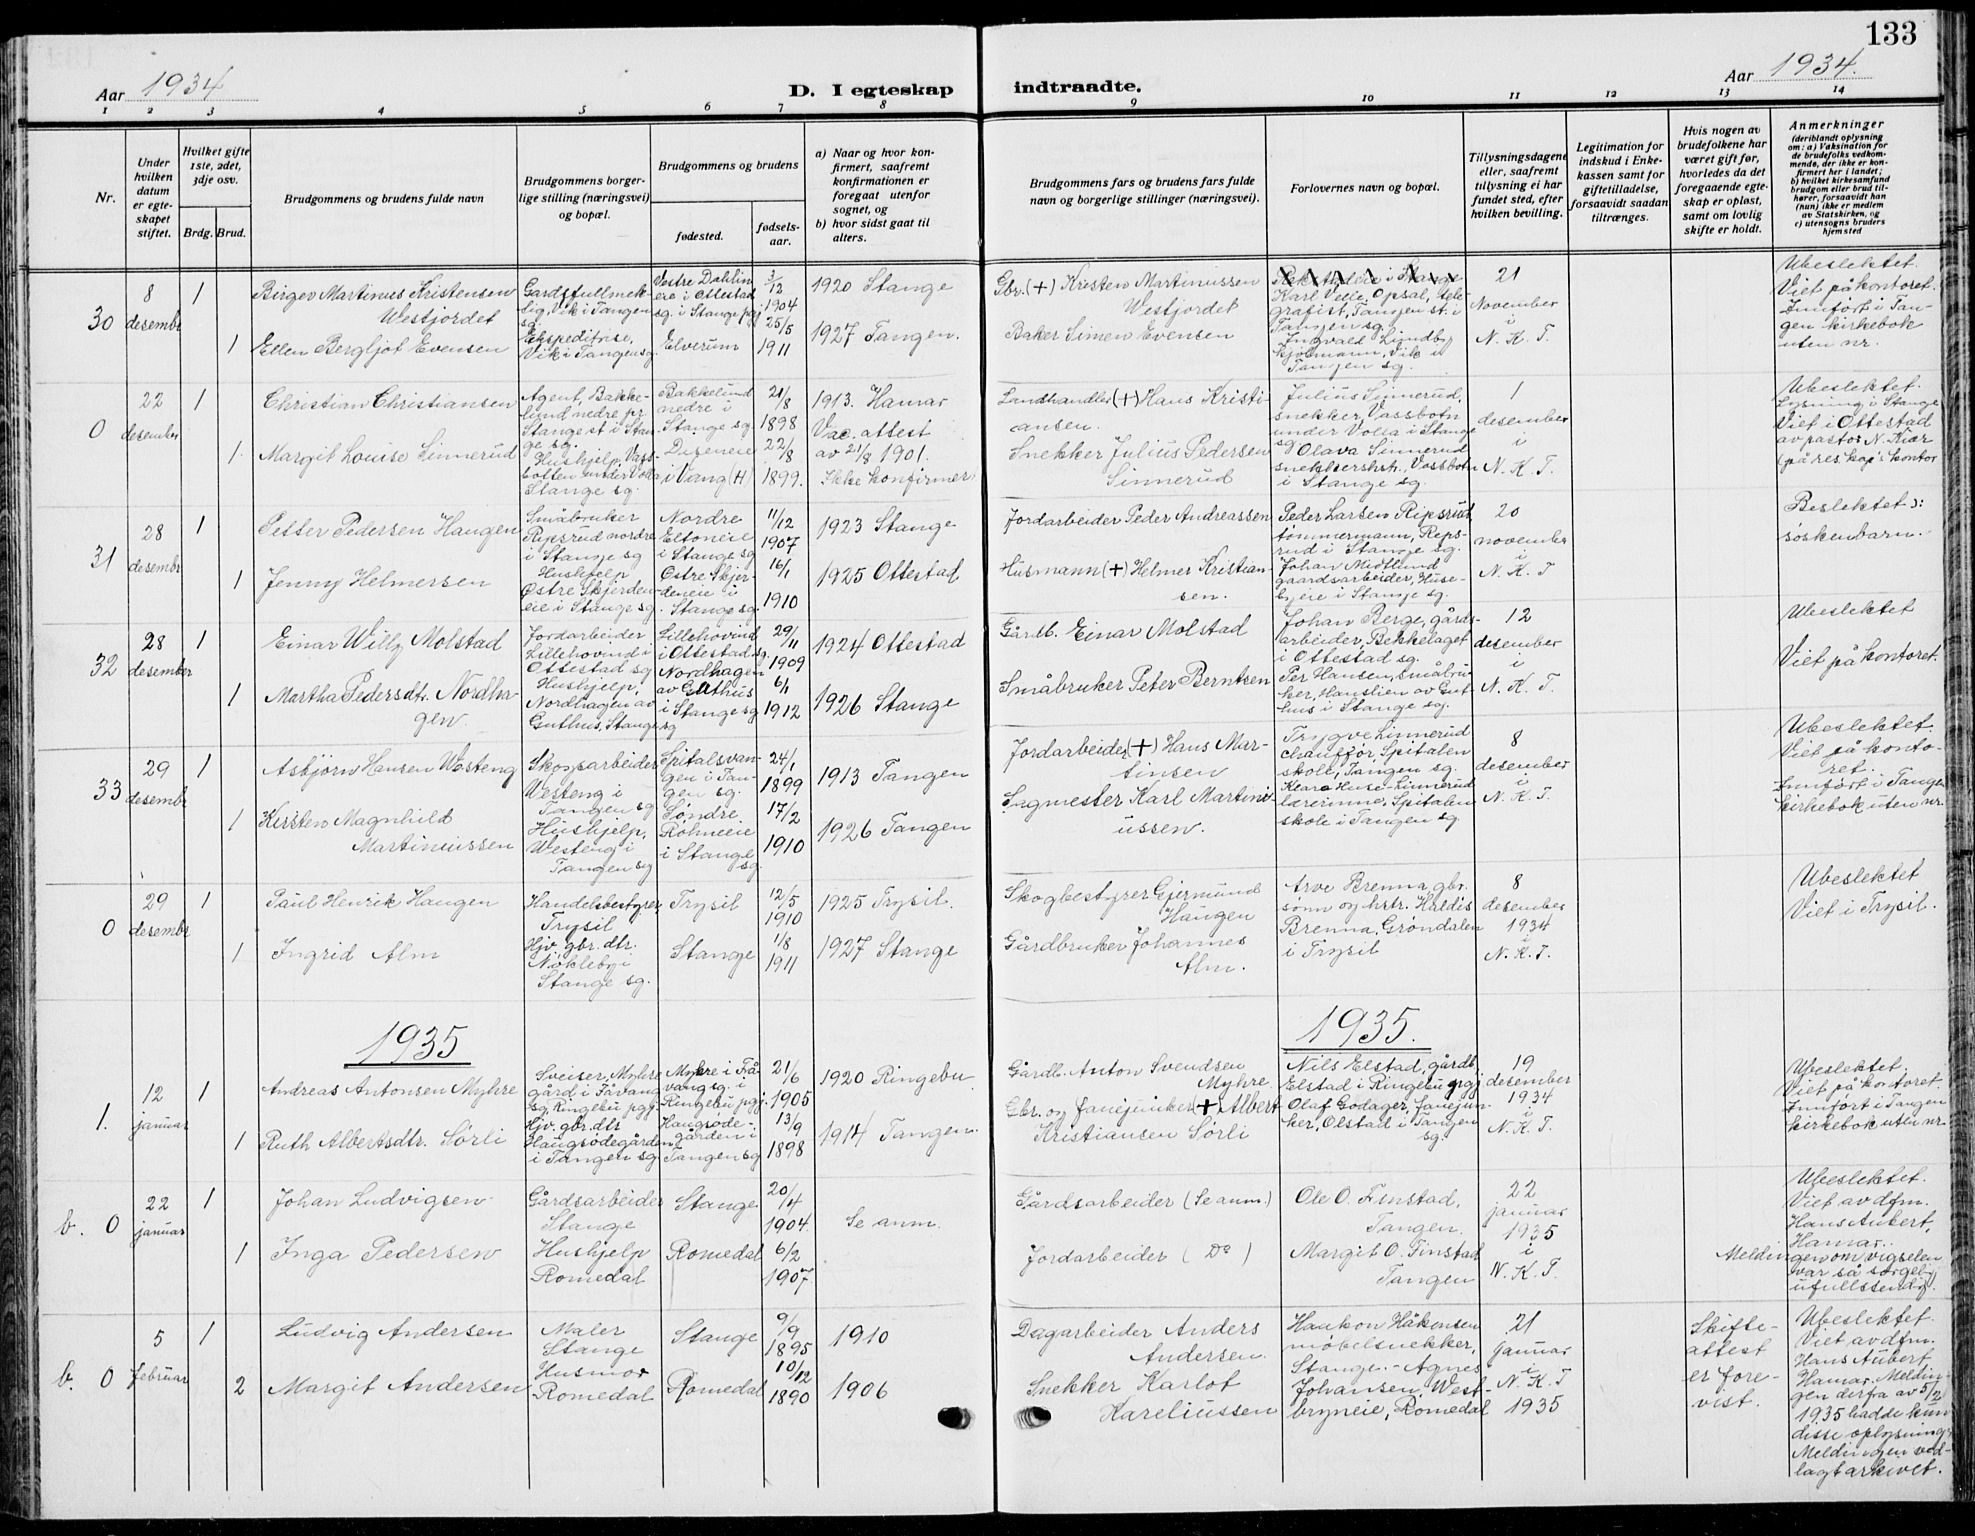 133
Aar 1934
D. I egteskap
indtraadte.
Aar 1934.
1 2 3 4 5 6 7 8 9 10 11 12 13 14
Nr.
Under
hvilken
datum
er egte-
skapet
stiftet.
Hvilket gifte
1ste, 2det,
3dje osv.
Brdg. Brud.
Brudgommens og brudens fulde navn
Brudgommens borger-
lige stilling (næringsvei)
og bopæl.
Brudgommens og brudens
fødested.
fødsels-
aar.
a) Naar og hvor kon-
firmert, saafremt
konfirmationen er
foregaat utenfor
sognet, og
b) hvor sidst gaat til
alters.
Brudgommens fars og brudens fars fulde
navn og borgerlige stillinger (næringsvei).
Forlovernes navn og bopæl.
Tillysningsdagene
eller, saafremt
tillysning ei har
fundet sted, efter
hvilken bevilling.
Legitimation for
indskud i Enke-
kassen samt for
giftetilladelse,
forsaavidt saadan
tiltrænges.
Hvis nogen av
brudefolkene har
været gift før,
hvorledes da det
foregaaende egte-
skap er opløst,
samt om lovlig
skifte er holdt.
Anmerkninger
(deriblandt oplysning
om: a) Vaksination for
de brudefolks vedkom-
mende, der ikke er kon-
firmert her i landet;
b) hvilket kirkesamfund
brudgom eller brud til-
hører, forsaavidt han
(hun) ikke er medlem
av Statskirken, og
c) utensogns bruders
hjemsted
30
8
desembr
1
Birger Martinus Kristensen
Westjordet
Gardsfullmek-
tig, Vik i Tangen
sg.
Vestre Dahlin-
eie i Ottestad
sg. i Stange pgj
3/12
1904
1920 Stange
Gbr. (+) Kristen Martinussen
Westjordet
Karl Velle Opsal, tele-
grafist, Tangen st. i
Tangen sg.
21
November
i
N. K. T.
Ubeslektet.
Viet på kontoret.
Innført i Tan-
gen kirkebok
uten nr.
1
Ellen Bergljot Evensen
Ekspeditrise,
Vik i Tangen sg.
Elverum
25/5
1911
1927 Tangen.
Baker Simen Evensen
Ingvald Lundby
kjølmann, Vik i
Tangen sg.
0
22
desember
1
Christian Christiansen
Agent, Bakke-
lund nedre pr
Stange st i Stan-
ge sg.
Bakkelund
nedre i
Stange sg
21/8
1898
1913. Hamar
Vac. attest
av 21/8 1901.
Landhandler (+) Hans Kristi-
ansen.
Julius Sinnerud,
snekker, Vassbotn
under Volla i Stange
sg
1
desember
i
N. K. T.
Ubeslektet.
Lysning i Stange
Viet i Ottestad
av pastor N. Kiær
(på res. kap's kontor
1.
Margit Louise Sinnerud
Hushjelp Vass-
botten under Volla
Stange sg.
Diseneie
i Vang (H)
22/8
1899.
Ikke konfirmer
Snekker Julius Pedersen
Sinnerud
Olava Sinnerud
snekkershst. Vassbotn
i Stange sg.
31
28
desembr
1
Petter Pedersen Haugen
Småbruker
Ripsrud nordre
i Stange sg
Nordre
Eltoneie
i Stange sg
11/12
1907
1923 Stange
Jordarbeider Peder Andreassen
Peder Larsen Ripsrud
tømmermann, Reps-
rud i Stange sg.
20
november
i
N. K. T
Beslektet ):
søskenbarn.
1
Jenny Helmersen
Hushjelp
Østre Skjerden-
eie i Stange sg.
Østre Skjer-
deneie i
Stange sg.
16/1
1910
1925 Ottestad
Husmann (+) Helmer Kristian-
sen.
Johan Midtlund
gaardsarbeider, Huse-
byeie i Stange sg.
32
28
desember
1
Einar Willy Molstad
Jordarbeider
Lillehovind i
Ottestad sg
Lillehovind
i Ottestad sg.
29/11
1909
1924 Ottestad
Gårdb. Einar Molstad
Johan Berge, gårds-
arbeider, Bekkelaget
i Ottestad sg.
12
desember
i
N. K. T.
Ubeslektet
Viet på kontoret.
1
Martha Pedersdtr. Nordha-
gen
Hushjelp,
Nordhagen av
Guthus, Stange sg
Nordhagen
av Guthus
i Stange sg
6/1
1912
1926 Stange
Småbruker Peter Berntsen
Per Hansen, småbru-
ker, Hanslien av Gut-
hus i Stange sg.
33
29
desembr
1
Asbjørn Hansen Westeng
Skogsarbeider
Vesteng i
Tangen sg
Spitalsvan-
gen i Tan-
gen sg.
24/1
1899
1913 Tangen
Jordarbeider (+) Hans Mar-
tinsen
Trygve Linnerud
chauffør, Spitalen
skole, Tangen sg.
8
desember
i
N. K. T.
Ubeslektet.
Viet på konto-
ret.
Innført i Tangen
kirkebok uten nr.
1
Kirsten Magnhild
Martinussen
Hushjelp,
Westeng i
Tangen sg
Søndre
Rohneeie
i Stange
sg.
17/2
1910
1926 Tangen
Sagmester Karl Martini-
ussen.
Klara Huse-Linnerud
lærerinne, Spitalen
skole i Tangen sg.
0
29
desembr
1
Paul Henrik Haugen
Handelsbestyrer
Trysil
Trysil
12/5
1910
1925 Trysil.
Skogbestyrer Gjermund
Haugen
Arve Brenna, gbr.
sønn og hstr. Haldis
Brenna, Grøndalen
i Trysil
8
desember
1934
i
N. K. T.
Ubeslektet
Viet i Trysil.
1
Ingrid Alm
Hjv. gbr. dtr.
Nøkleby i
Stange sg.
Stange
1/8
1911
1927 Stange
Gårdbruker Johannes
Alm.
1935
1935.
1.
12
januar
1
Andreas Antonsen Myhre
Sveiser, Myhre
gård i Fåvang
sg, Ringebu pgj.
Myhre i Få-
vang sg. i
Ringebu pgj.
21/6
1905
1920 Ringebu
Gårdb. Anton Svendsen
Myhre
Nils Elstad, gårdb.
Elstad i Ringebu pgj
19
desember
1934
i
N. K. T.
Ubeslektet.
Viet på kontoret.
Innført i Tangen
kirkebok uten nr.
1
Ruth Albertsdtr. Sørli
Hjv. gbr. dtr
Haugsødegården
i Tangen sg
Haugsøde-
gården i
Tangen sg
13/9
1898
1914 Tangen.
Gbr. og fanejunker (+) Albert
Kristiansen Sørli
Olaf Godager, fanejun-
ker, Olstad i Tangen
sg
b. 0
22
januar
1
Johan Ludvigsen
Gårdsarbeider
Stange
Stange
20/4
1904.
Se anm.
Gårdsarbeider (Se anm.)
Ole O. Finstad,
Tangen.
22
januar
1935
i
N. K. T.
Ubeslektet.
Viet av dfm.
Hans Aubert,
Hamar.
Meldingen om vigselen
var så sørgelig
ufullstendig.
1
Inga Pedersen
Hushjelp
Romedal
Romedal
6/2
1907.
Jordarbeider ( Do )
Margit O. Finstad
Tangen
b. 0
5
februar
1
Ludvig Andersen
Maler
Stange
Stange
9/9
1895
1910
Dagarbeider Anders
Andersen.
Haakon Håkensen
møbelsnekker,
Stange. - Agnes
Johansen, West-
bryneie, Romedal
21
januar
i
N. K. T
1935
Skifte-
attest
er fore-
vist.
Ubeslektet.
Viet av dfm.
Hans Aubert,
Hamar. Meldin-
gen derfra av 5/2
1935 hadde kun
disse oplysninger
Meldingen ved-
lagt arkivet.
2
Margit Andersen
Husmor
Romedal
Romedal
10/12
1890
1906
Snekker Karlot
Kareliussen